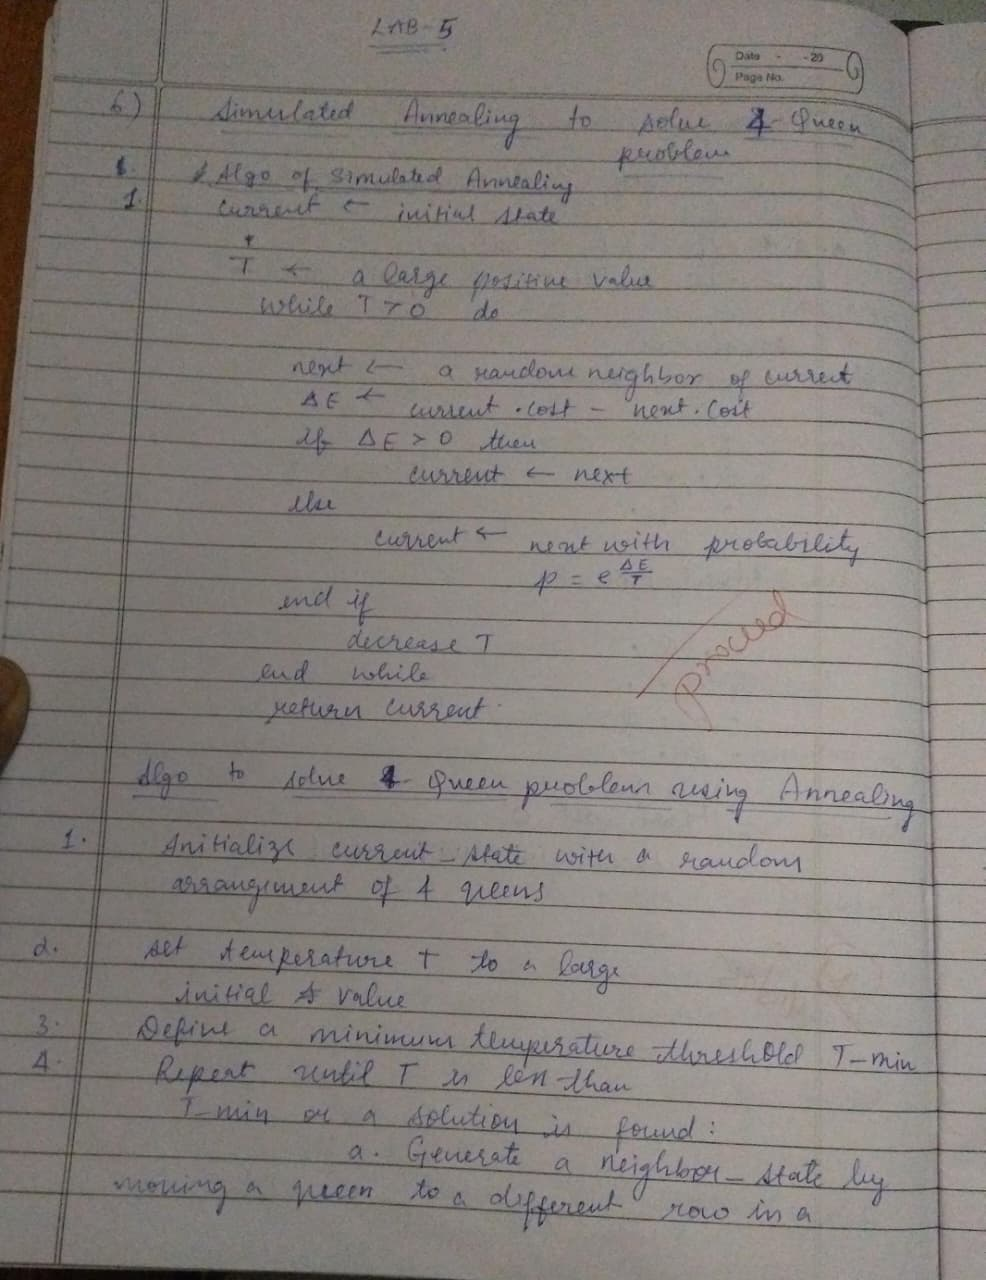 LAB-5
Date - - 20
Page No.
6) Simulated Annealing to solve 4-Queen
problem
Algo of Simulated Annealing
1. current ← initial state
T ← a large positive value
while T > 0 do
next ← a random neighbor of current
ΔE ← current.cost - next.cost
if ΔE > 0 then
current ← next
else
current ← next with probability
p = e^(ΔE/T)
end if
decrease T
end while
return current
proceed
Algo to solve 4-Queen problem using Annealing
1. Initialize current_state with a random
arrangement of 4 queens
2. Set temperature T to a large
initial value
3. Define a minimum temperature threshold T-min
4. Repeat until T is less than
T-min or a solution is found:
a. Generate a neighbor_state by
moving a queen to a different row in a